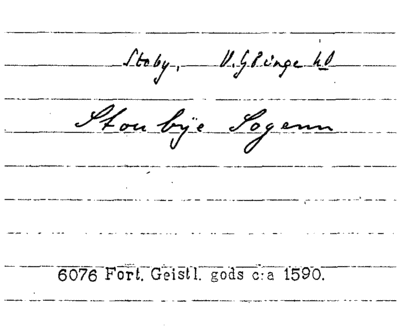 Stoby, V. Göinge hd
Stou bÿe Sogenn
6076 Fort. Geistl. gods c:a 1590.